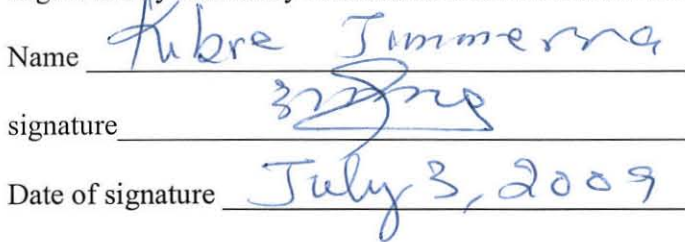 Name Kibre Jimmerra
signature
Date of signature July 3, 2009